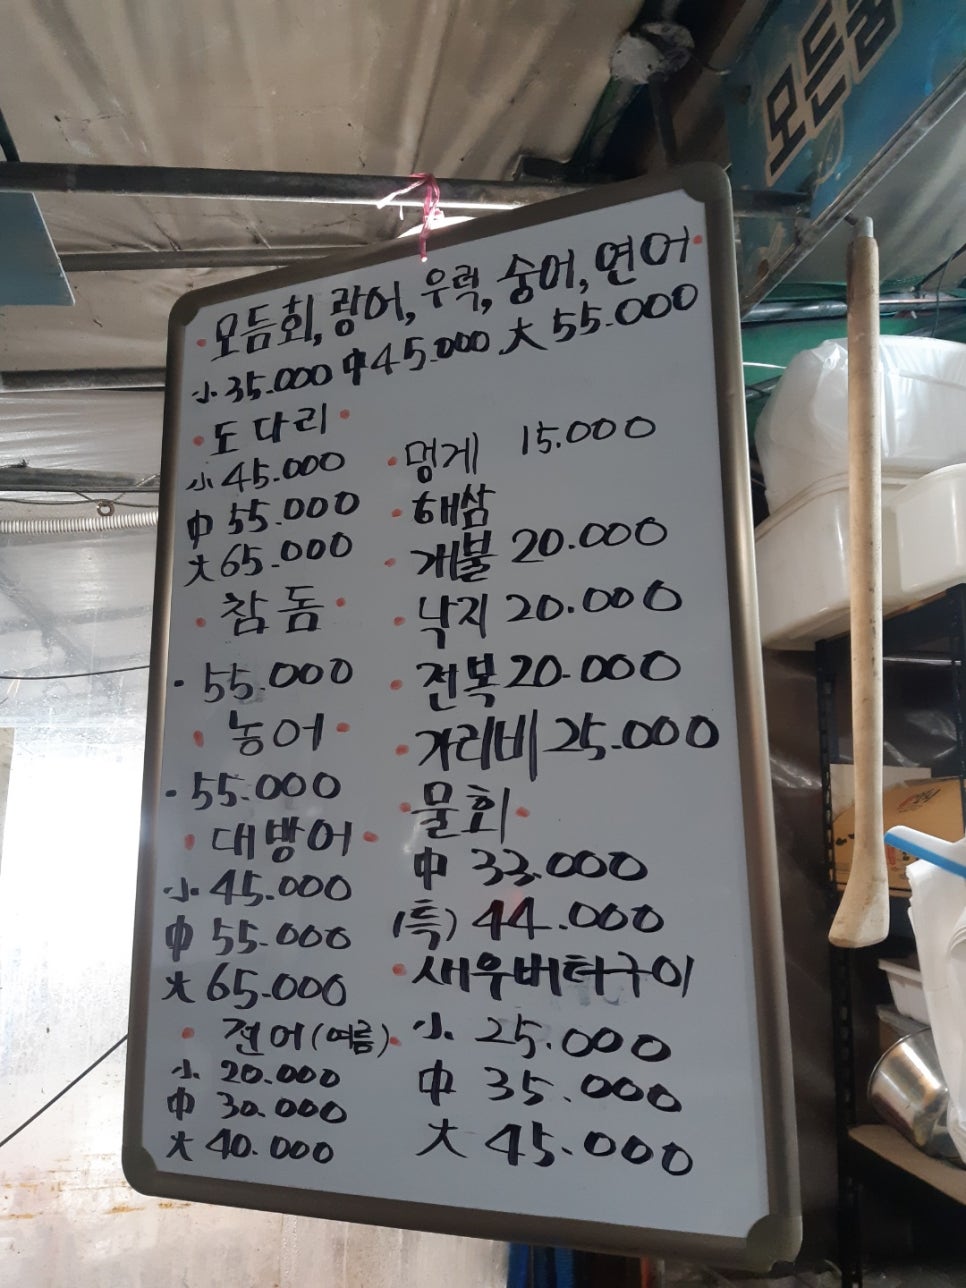 모듬회, 광어, 우럭, 숭어, 연어
小 35.000 中 45.000 大 55.000
도다리
小 45.000
中 55.000
大 65.000
참돔
55.000
농어
55.000
대방어
小 45.000
中 55.000
大 65.000
전어(여름)
小 20.000
中 30.000
大 40.000
멍게 15.000
해삼
개불 20.000
낙지 20.000
전복 20.000
가리비 25.000
물회
中 33.000
(특) 44.000
새우버터구이
小 25.000
中 35.000
大 45.000
모든